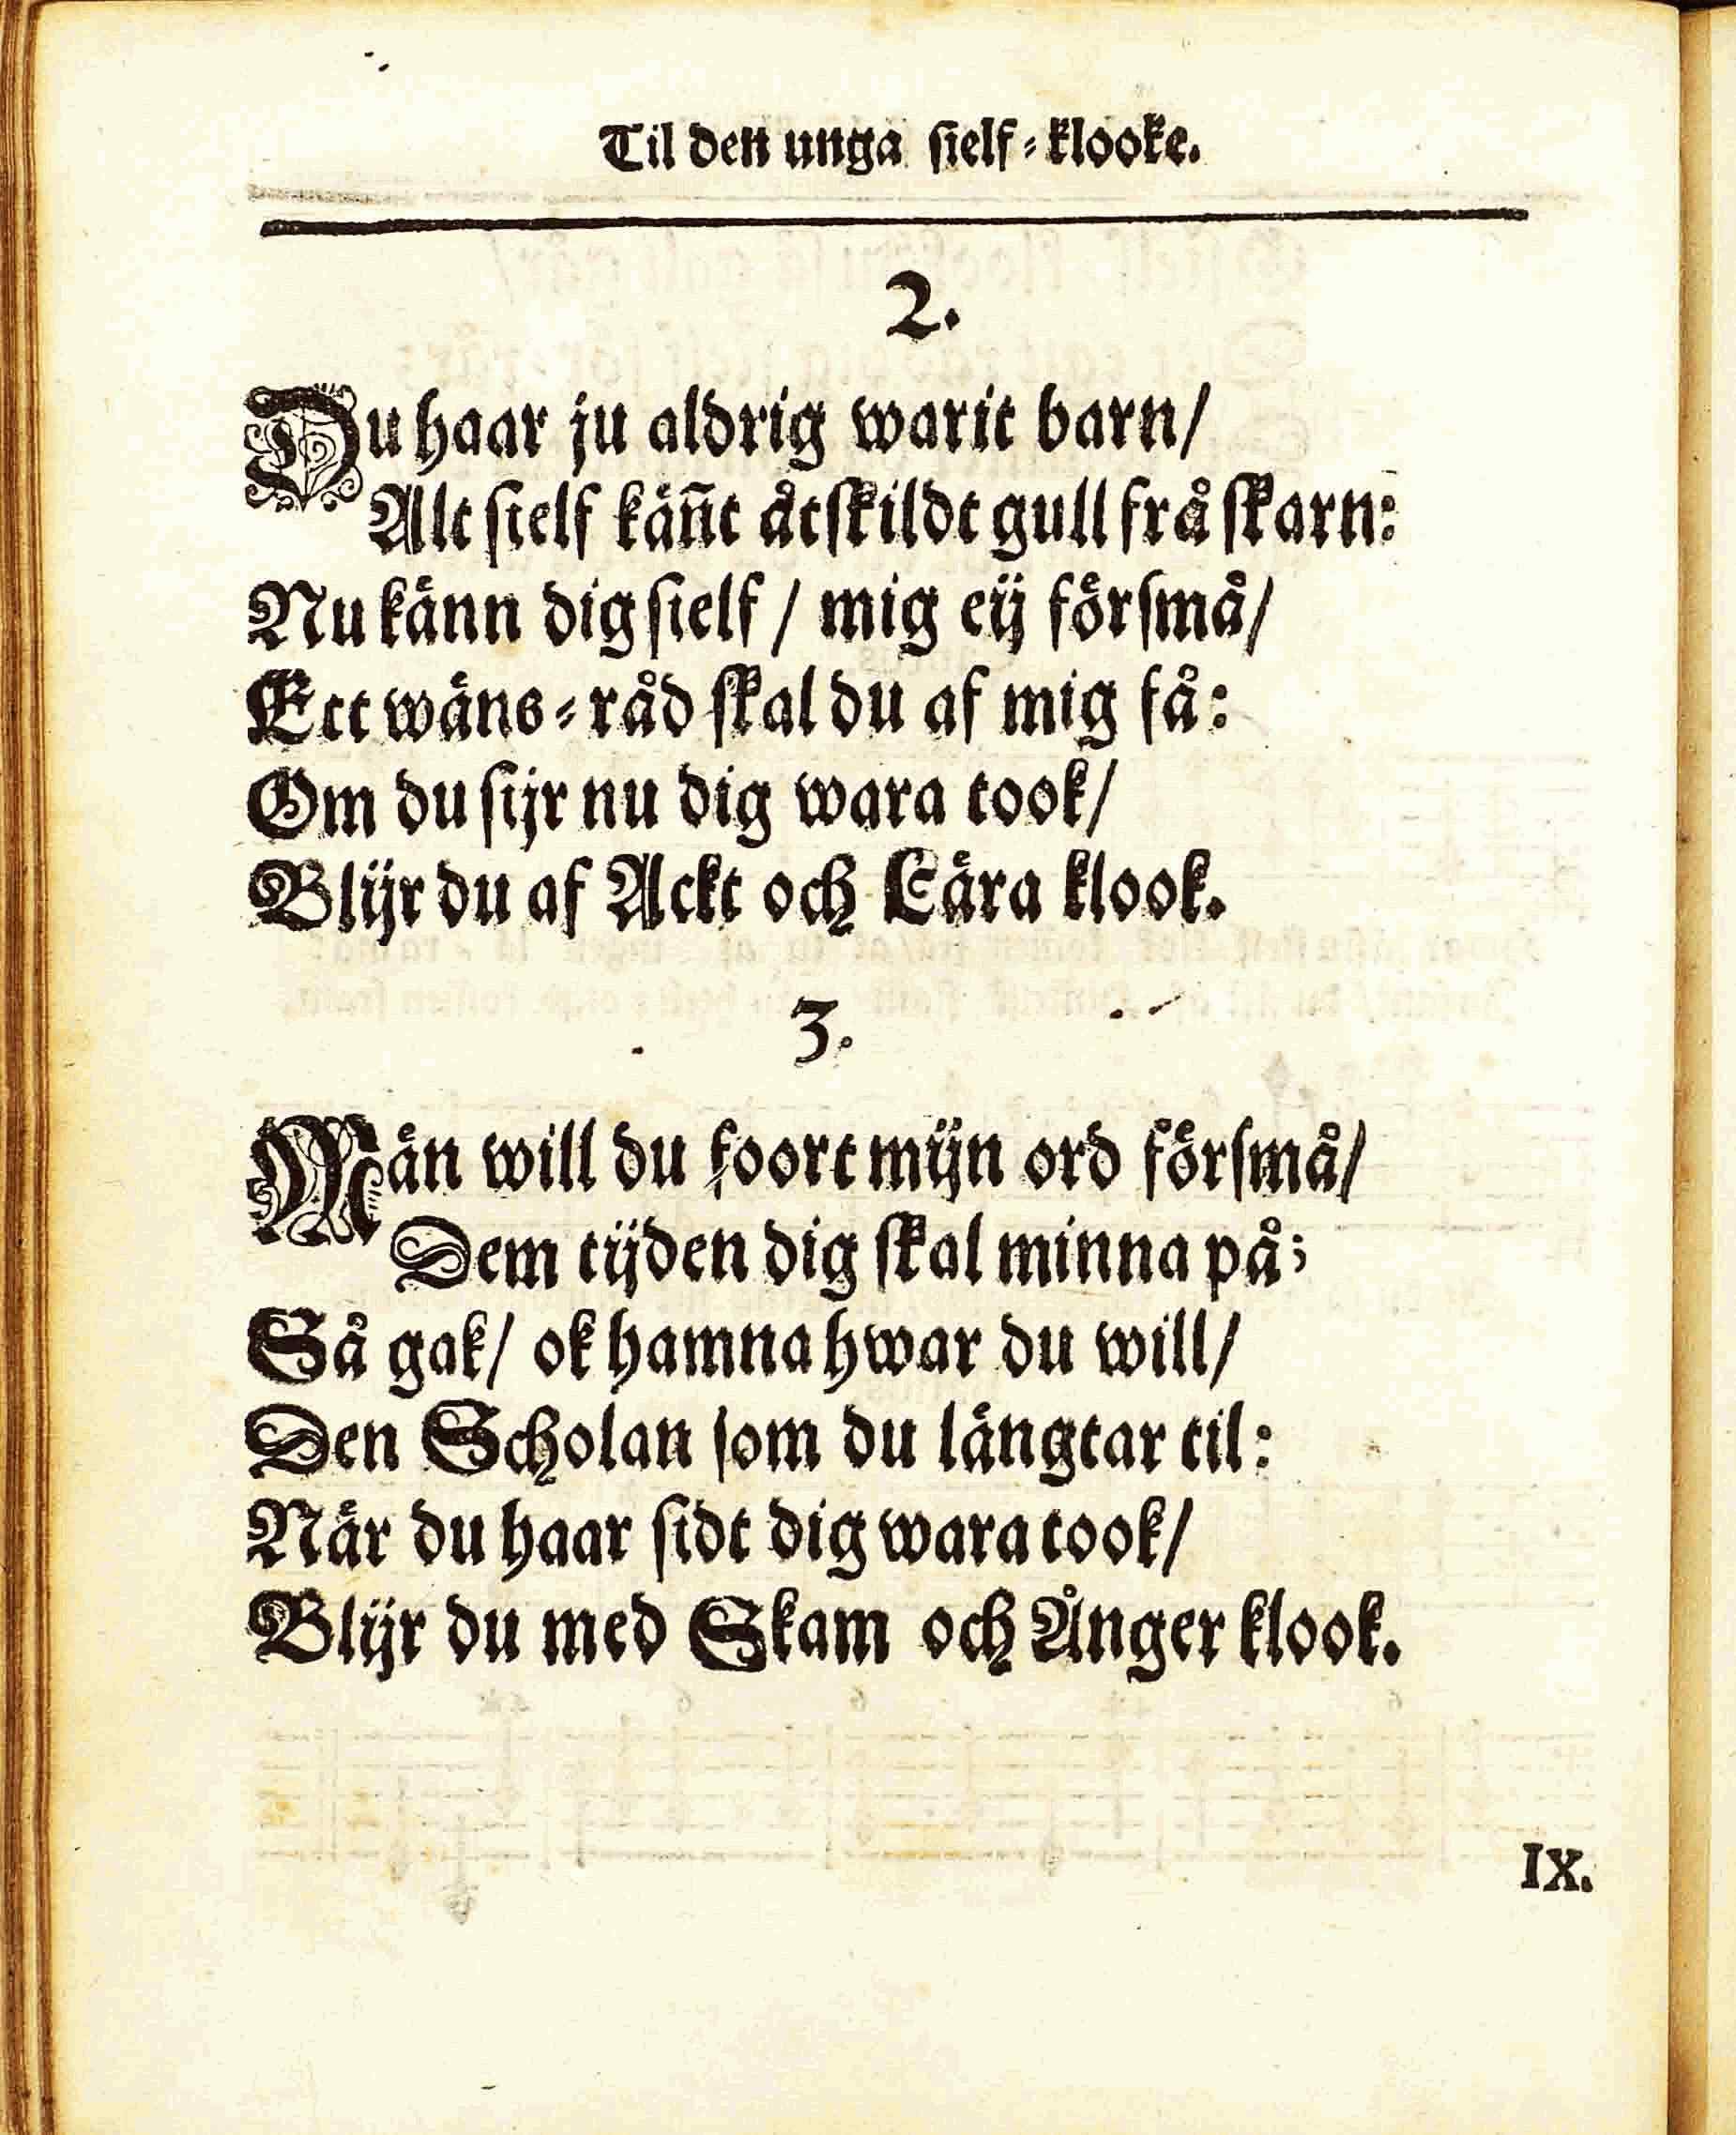 Til den unga sielf-klooke.
2.
Du haar ju aldrig warit barn/
Alt sielf kän̄t åtskildt gull frå skarn:
Nu känn dig sielf / mig eÿ försmå/
Ett wäns-råd skal du af mig få:
Om du sijr nu dig wara took/
Blijr du af Ackt och Lära klook.
3.
Män will du foort mijn ord försmå/
Dem tijden dig skal minna på;
Så gak/ ok hamna hwar du will/
Den Scholan som du längtar til:
När du haar sidt dig wara took/
Blijr du med Skam och Ånger klook.
IX.